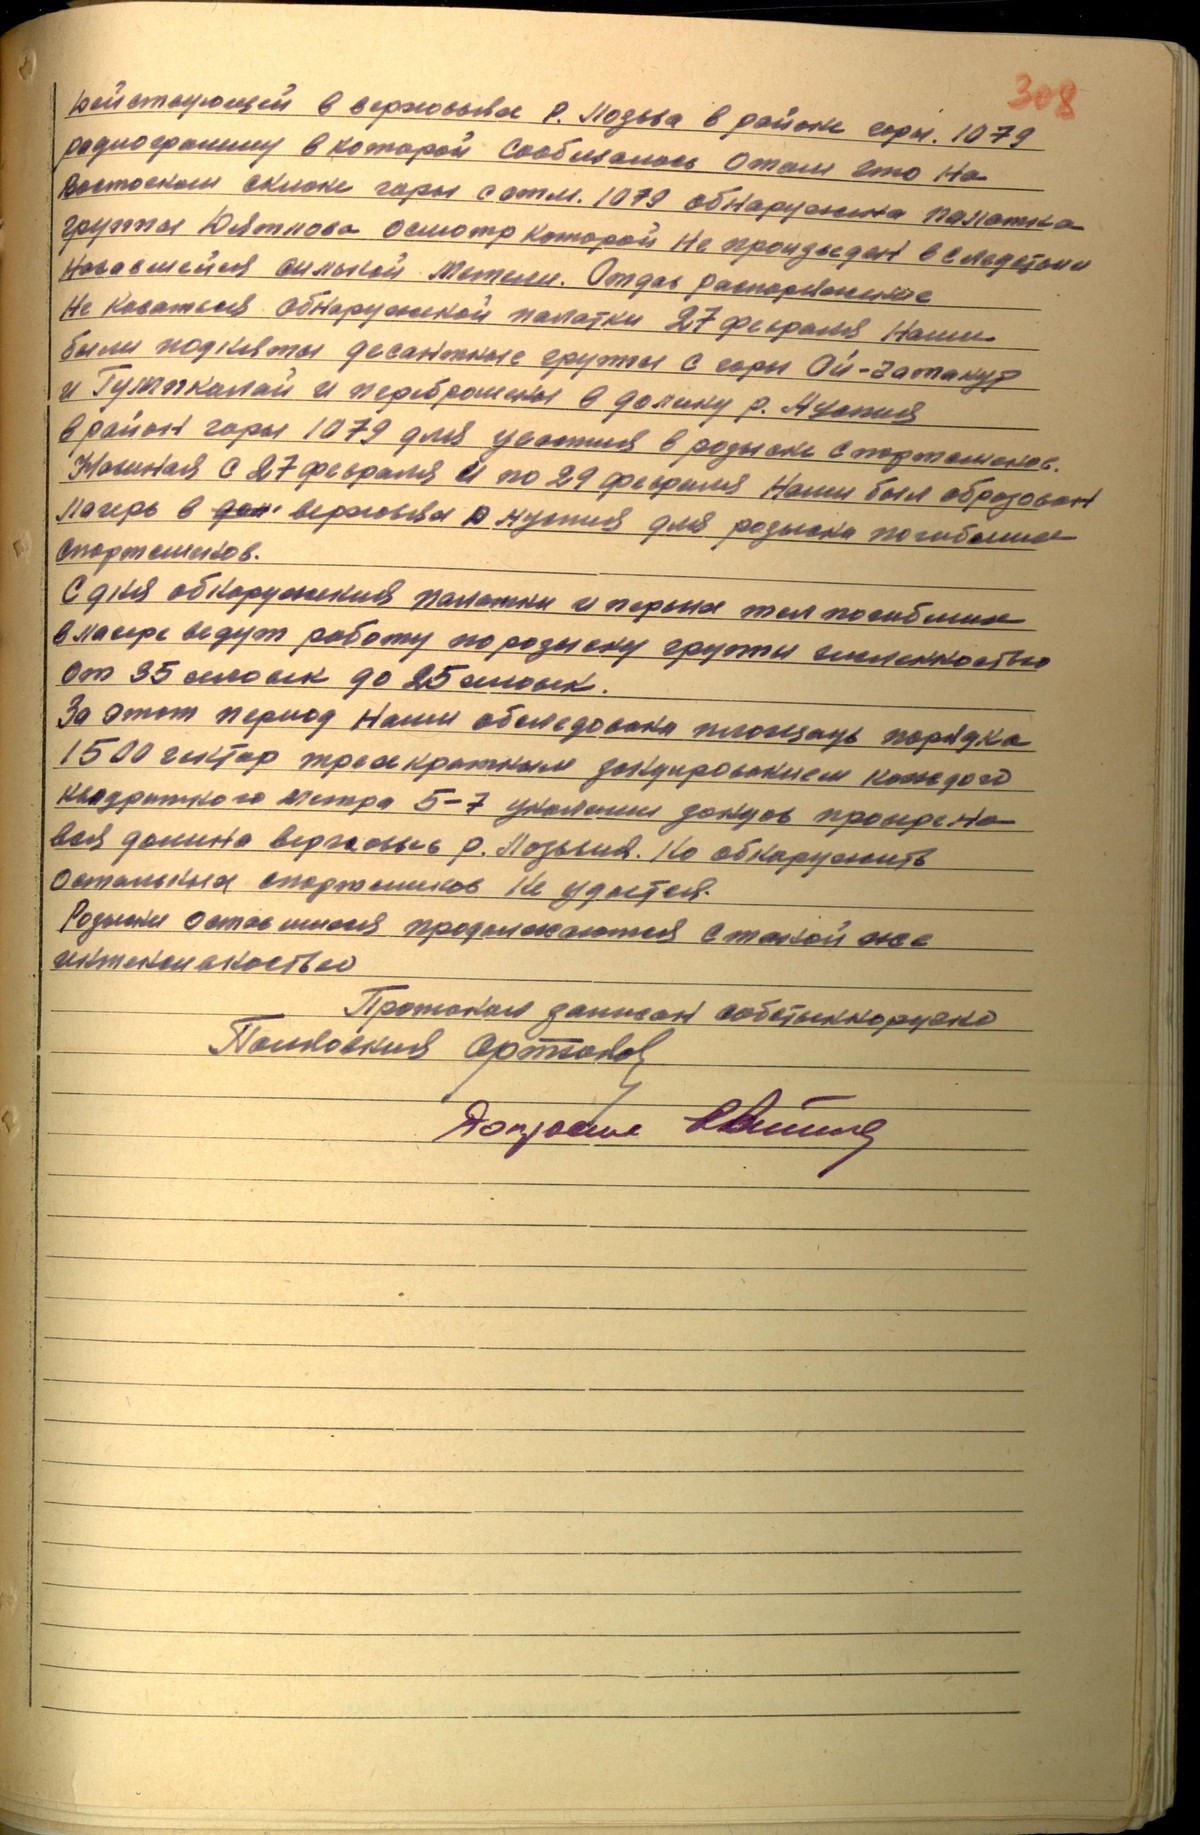 308
действующей в верховьях р. Лозьва в районе горы. 1079
радиограмму в которой сообщалось отом что на
восточном склоне горы с отм. 1079 обнаружена палатка
группы Дятлова осмотр которой не произведен вследствии
начавшейся сильной метели. Отдав распоряжение
не касаться обнаруженой палатки 27 февраля нами
были подняты десантные группы с горы Ой-Чакур
и и переброшены в долину р. Ауспия
в район горы 1079 для участия в розыске спортсменов.
Начиная с 27 февраля и по 29 февраля нами был образован
лагерь в дол. верховья р Ауспия для розыска погибших
спортсменов.
С дня обнаружения палатки и первых тел погибших
в лагере ведут работу по розыску группы численностью
от 35 человек до 25 человек.
За этот период нами обследована площадь порядка
1500 гектар трехкратным зондированием каждого
квадратного метра 5-7 уколами зондов проверена
вся долина верховье р. Лозьвия. Но обнаружить
остальных спортсменов не удается.
Розыски оставшихся продолжаются с такой же
интенсивностью
Протокол записан собственноручно
Полковник Ортюков
Допросил